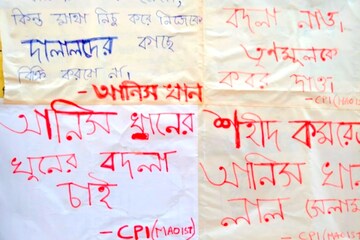 কিন্তু মাথা নিচু করে নিজেকে
দালালদের কাছে
বিক্রি করবো না।
- আনিস খান
বদলা নাও।
তৃণমূলকে
কবর দাও।
-CPI(MAOIST)
আনিস খানের
খুনের বদলা
চাই
- CPI(MAOIST)
শহীদ কমরেড
আনিস খান
লাল সেলাম
- CPI(MAOIST)